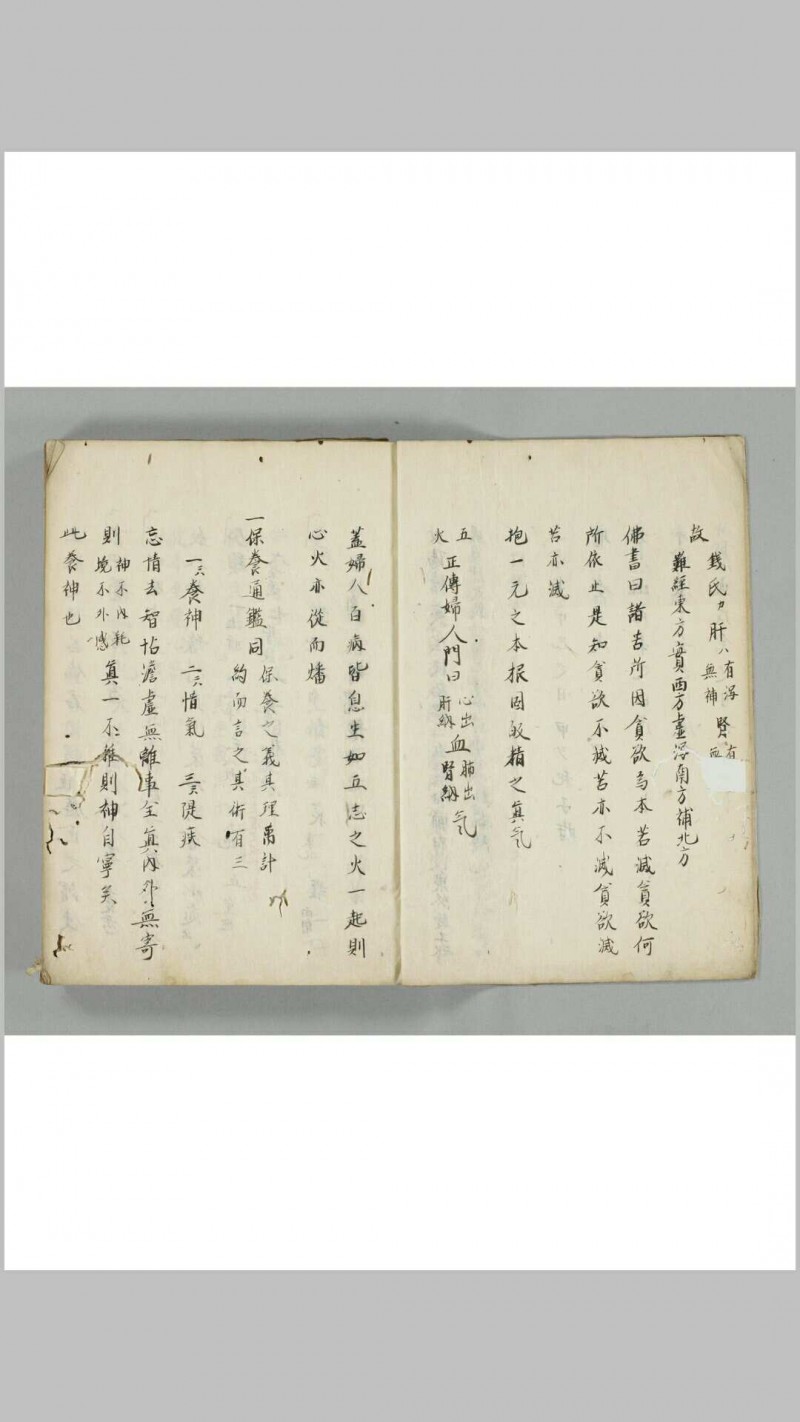 故
錢氏カ肝ハ有瀉無神腎有
難經東方實西方虛瀉南方補北方
佛書曰諸苦所因貪欲為本若滅貪欲何
所依止是知貪欲不滅苦亦不滅貪欲滅
苦亦滅
抱一元之本根固 精之真气
五火
正傳婦人門曰心出肝納血肺出腎納气
蓋婦人百病皆息生如五志之火一起則
心火亦從而燔
一保養通鑑同保養之義其理萬計約而言之其術有三
一ニハ養神 二ニハ惜氣 三ニ堤疾
忘情去智恬澹虛無離事全真內外無寄
則神不内耗境不外惑真一不雜則神自寧矣
此養神也